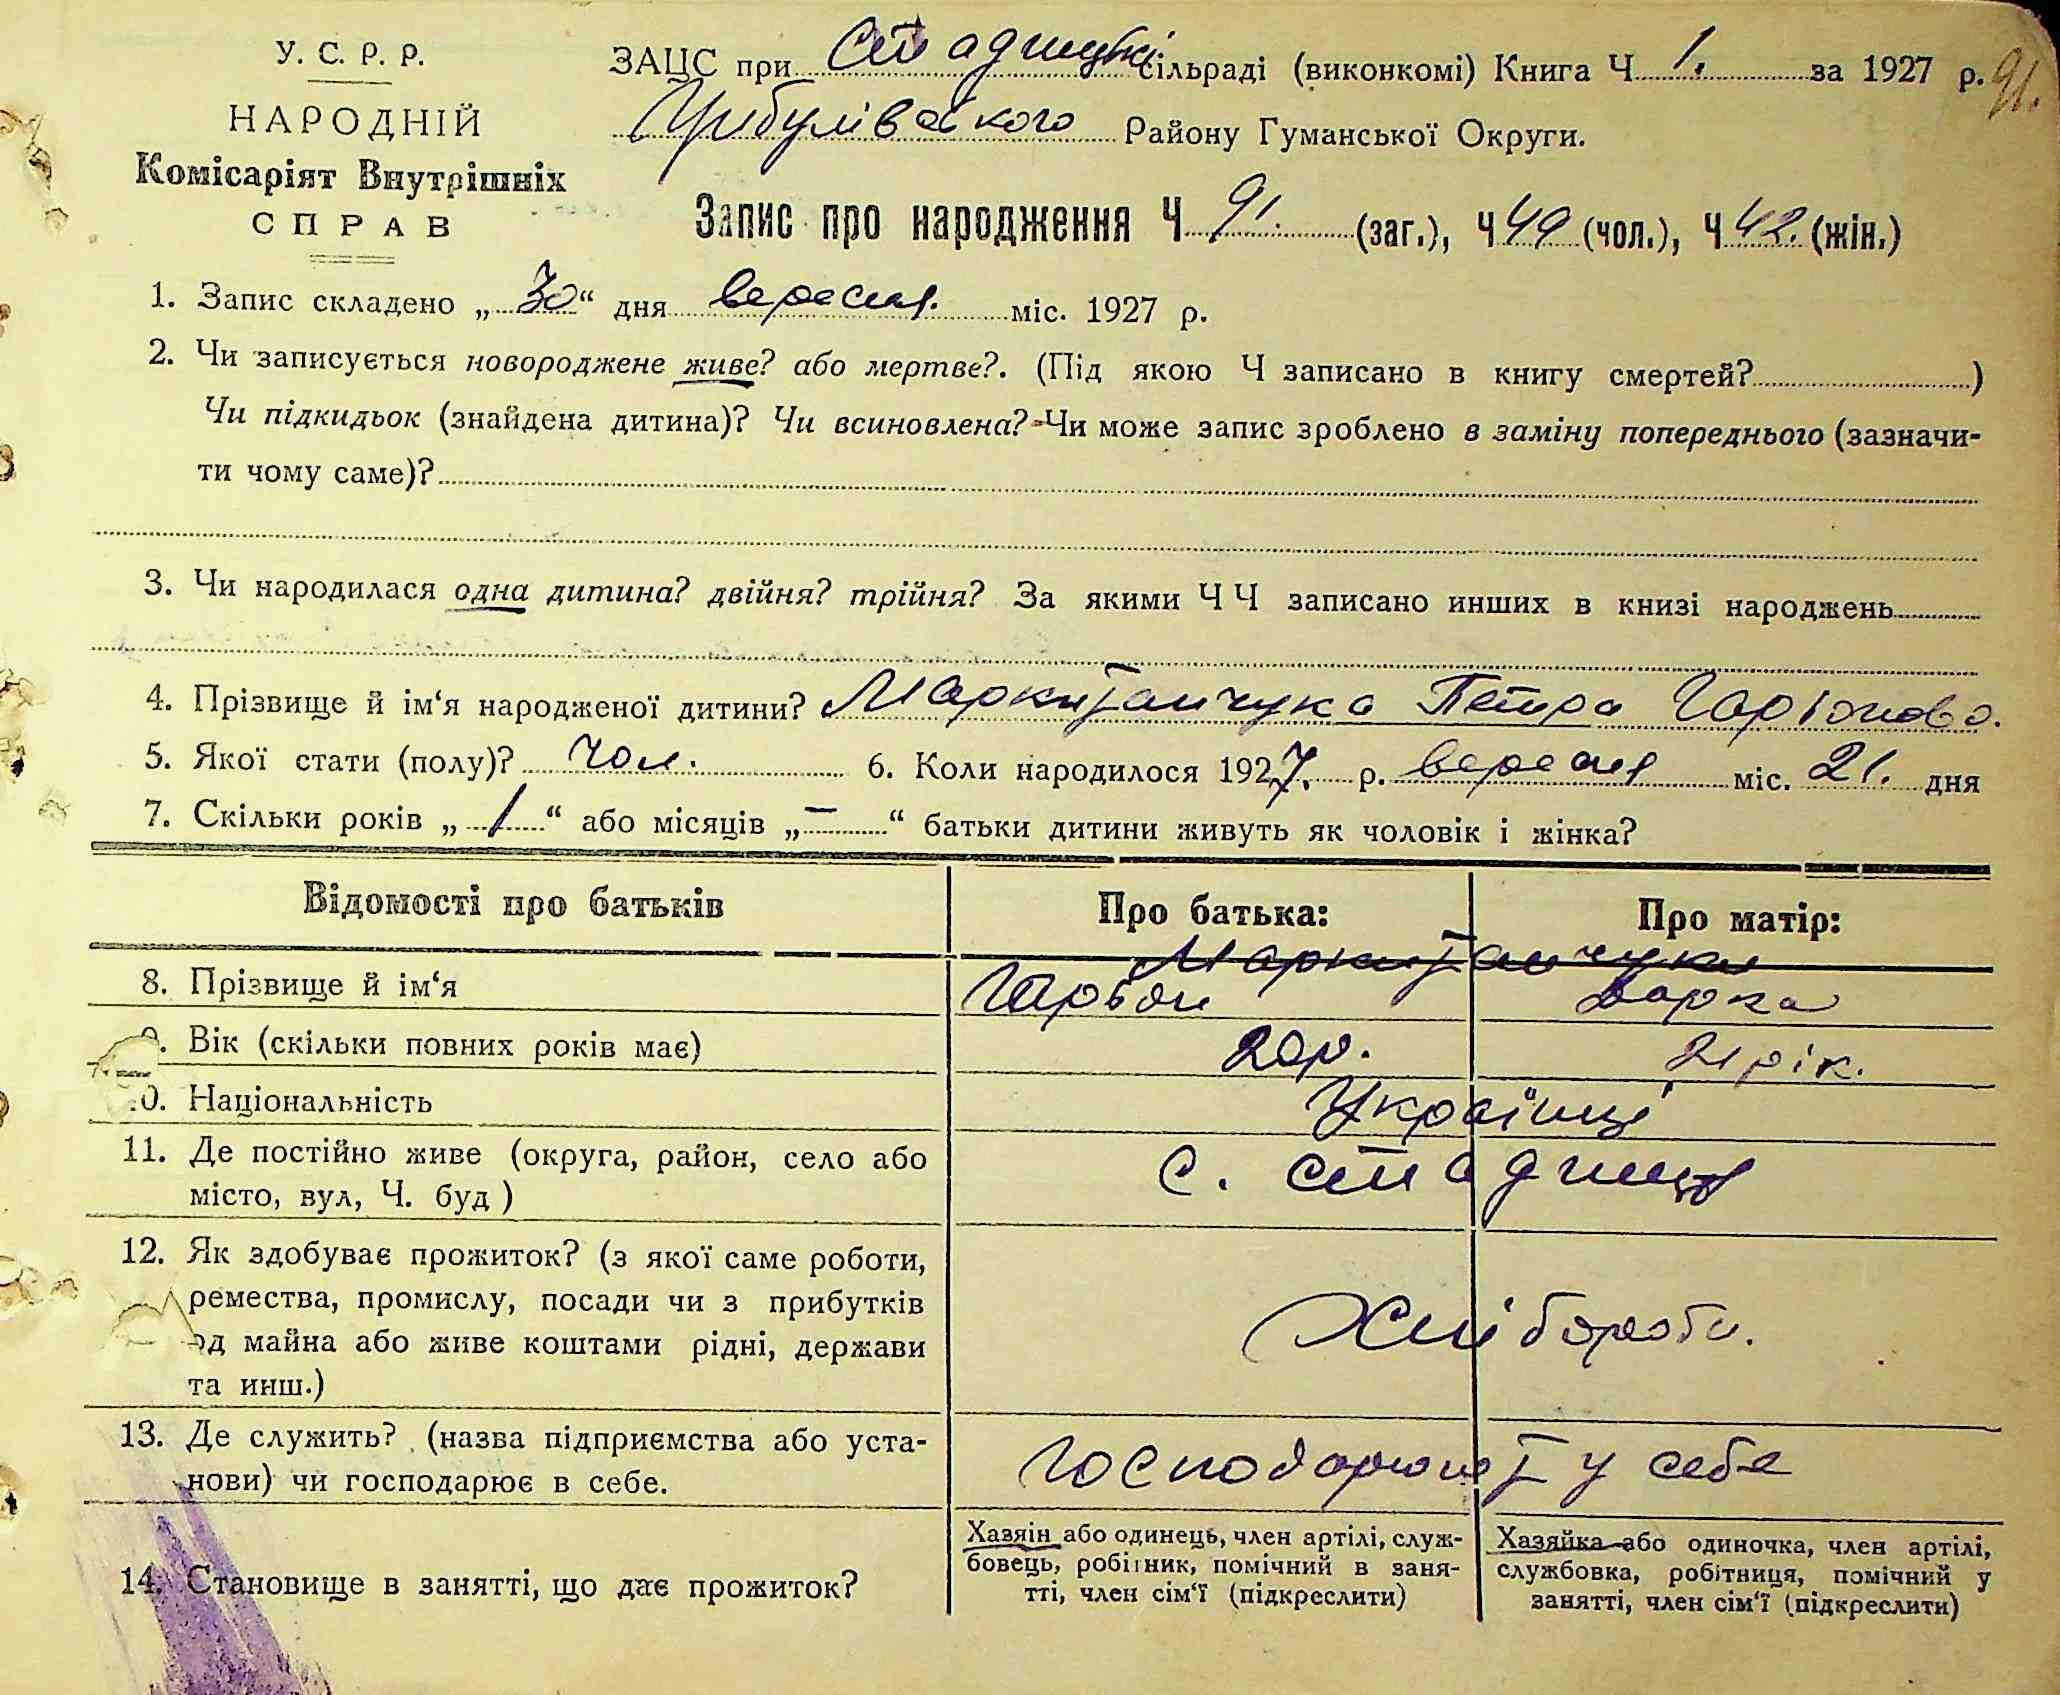 У. С. Р. Р.
НАРОДНІЙ
Комісаріят Внутрішніх
СПРАВ
ЗАЦС при Стадницькі сільраді (виконкомі) Книга Ч 1. за 1927 р. 91.
Цибулівського Району Гуманської Округи.
Запис про народження Ч 91. (заг.), Ч 49 (чол.), Ч 42. (жін.)
1. Запис складено „30“ дня вересня. міс. 1927 р.
2. Чи записується новороджене живе? або мертве?. (Під якою Ч записано в книгу смертей? )
Чи підкидьок (знайдена дитина)? Чи всиновлена? Чи може запис зроблено в заміну попереднього (зазначи-
ти чому саме)?
3. Чи народилася одна дитина? двійня? трійня? За якими ЧЧ записано инших в книзі народжень
4. Прізвище й ім‘я народженої дитини? Маркитанчука Петра
5. Якої стати (полу)? чол. 6. Коли народилося 1927. р. вересня міс. 21. дня
7. Скільки років „1“ або місяців „—“ батьки дитини живуть як чоловік і жінка?
Відомості про батьків Про батька: Про матір:
Маркитанчуки
8. Прізвище й ім‘я Дарка
9. Вік (скільки повних років має) 20р. 21 рік.
10. Національність Українці
11. Де постійно живе (округа, район, село або с. Стадниця
місто, вул, Ч. буд )
12. Як здобуває прожиток? (з якої саме роботи,
ремества, промислу, посади чи з прибутків Хлібороби.
од майна або живе коштами рідні, держави
та инш.)
13. Де служить? (назва підприємства або уста- Господарюют у себе
нови) чи господарює в себе.
14. Становище в занятті, що дає прожиток?
Хазяїн або одинець, член артілі, служ-
бовець, робітник, помічний в заня-
тті, член сім‘ї (підкреслити)
Хазяйка або одиночка, член артілі,
службовка, робітниця, помічний у
занятті, член сім‘ї (підкреслити)